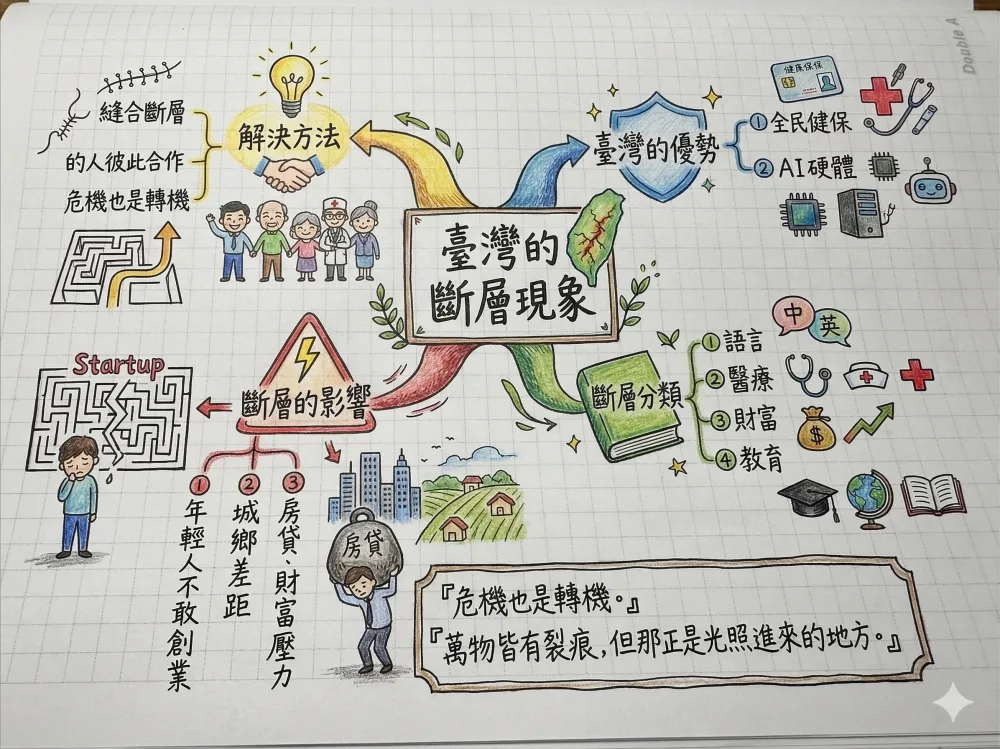 Double A
縫合斷層
的人彼此合作
危機也是轉機
解決方法
臺灣的優勢
①全民健保
②AI硬體
健康保保
臺灣的
斷層現象
Startup
斷層的影響
①年輕人不敢創業
②城鄉差距
③房貸、財富壓力
房貸
斷層分類
①語言
②醫療
③財富
④教育
中
英
$
『危機也是轉機。』
『萬物皆有裂痕,但那正是光照進來的地方。』